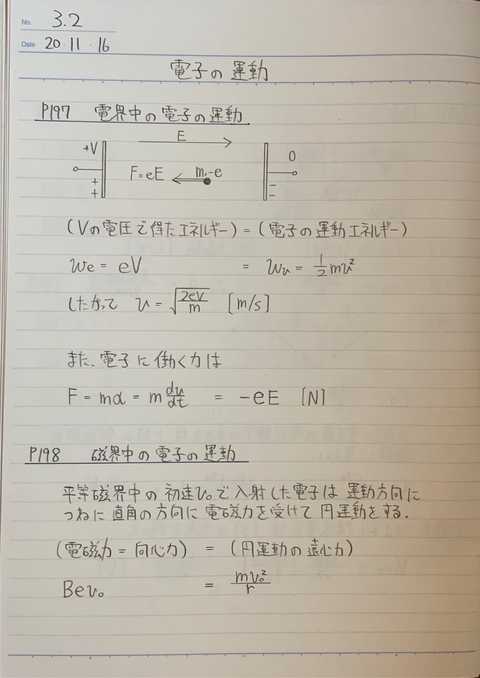 No. 3.2
Date 20 11 ・16
電子の運動
P197 電界中の電子の運動
E
+V
0
F=eE
m,-e
+
+
−
−
(Vの電圧で得たエネルギー) = (電子の運動エネルギー)
We = eV = Wu = 1/2 mv²
したがって v = √(2eV/m) [m/s]
また、電子に働く力は
F = mα = m dv/dt = -eE [N]
P198 磁界中の電子の運動
平等磁界中の初速v₀で入射した電子は運動方向に
つねに直角の方向に電磁力を受けて円運動をする.
(電磁力 = 向心力) = (円運動の遠心力)
Bev₀ = mv₀²/r